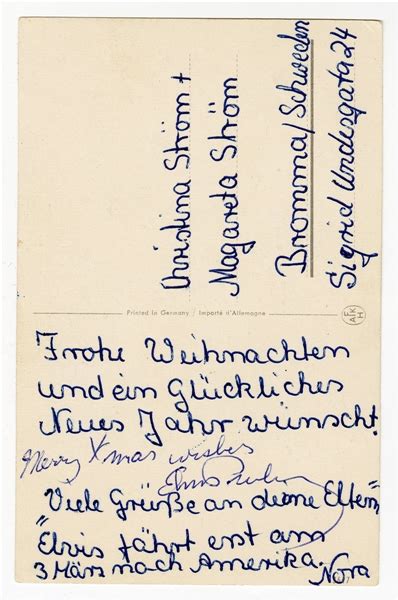 Christina Ström +
Magareta Ström
Bromma/Schweden
Sigrid Undesgata 24
Printed in Germany / Importé d'Allemagne
Frohe Weihnachten
und ein Glückliches
Neues Jahr wünscht.
Merry Xmas wishes
Elvis Presley
Viele Grüße an deine Eltern
"Elvis fährt erst am"
3 März nach Amerika.
Nora